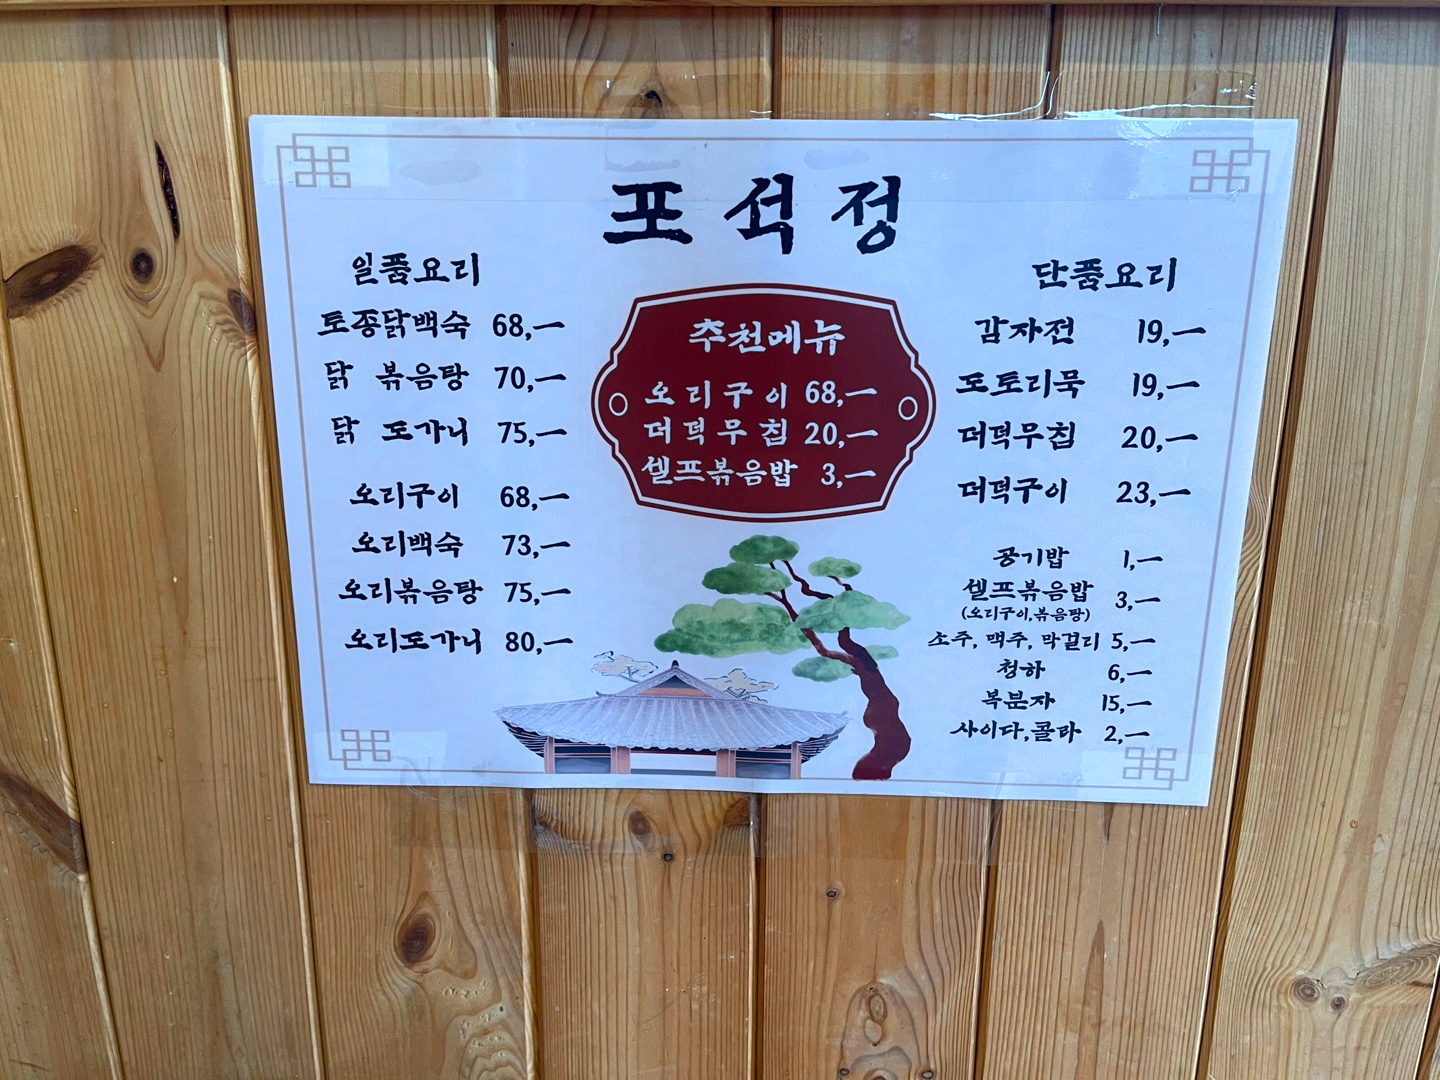 포석정
일품요리
토종닭백숙 68,ㅡ
닭 볶음탕 70,ㅡ
닭 도가니 75,ㅡ
오리구이 68,ㅡ
오리백숙 73,ㅡ
오리볶음탕 75,ㅡ
오리도가니 80,ㅡ
추천메뉴
오리구이 68,ㅡ
더덕무침 20,ㅡ
셀프볶음밥 3,ㅡ
단품요리
감자전 19,ㅡ
도토리묵 19,ㅡ
더덕무침 20,ㅡ
더덕구이 23,ㅡ
공기밥 1,ㅡ
셀프볶음밥 3,ㅡ
(오리구이,볶음탕)
소주, 맥주, 막걸리 5,ㅡ
청하 6,ㅡ
복분자 15,ㅡ
사이다,콜라 2,ㅡ